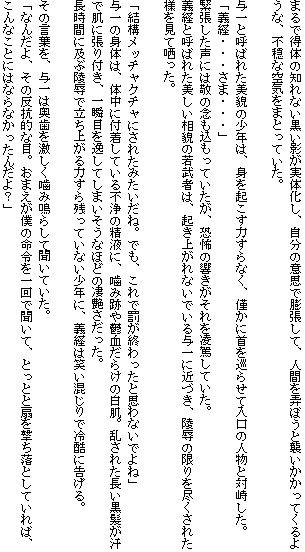 まるで得体の知れない黒い影が実体化し、自分の意思で膨張して、人間を弄ぼうと襲いかかってくるよ
うな、不穏な空気をまとっていた。
与一と呼ばれた美貌の少年は、身を起こす力すらなく、僅かに首を巡らせて入口の人物と対峙した。
「義経・・・さま・・・」
緊張した声には敬の念も込もっていたが、恐怖の響きがそれを凌駕していた。
義経と呼ばれた美しい相貌の若武者は、起き上がれないでいる与一に近づき、陵辱の限りを尽くされた
様を見て哂った。
「結構メッチャクチャにされたみたいだね。でも、これで罰が終わったと思わないでよね」
与一の身体は、体中に付着している不浄の精液に、噛み跡や鬱血だらけの白肌。乱された長い黒髪が汗
で肌に張り付き、一瞬目を逸してしまいそうなほどの凄艶さだった。
長時間に及ぶ陵辱で立ち上がる力すら残っていない少年に、義経は笑い混じりで冷酷に告げる。
その言葉を、与一は奥歯を激しく噛み鳴らして聞いていた。
「なんだよ、その反抗的な目。おまえが僕の命令を一回で聞いて、とっとと扇を撃ち落としていれば、
こんなことにはならなかったんだよ？」